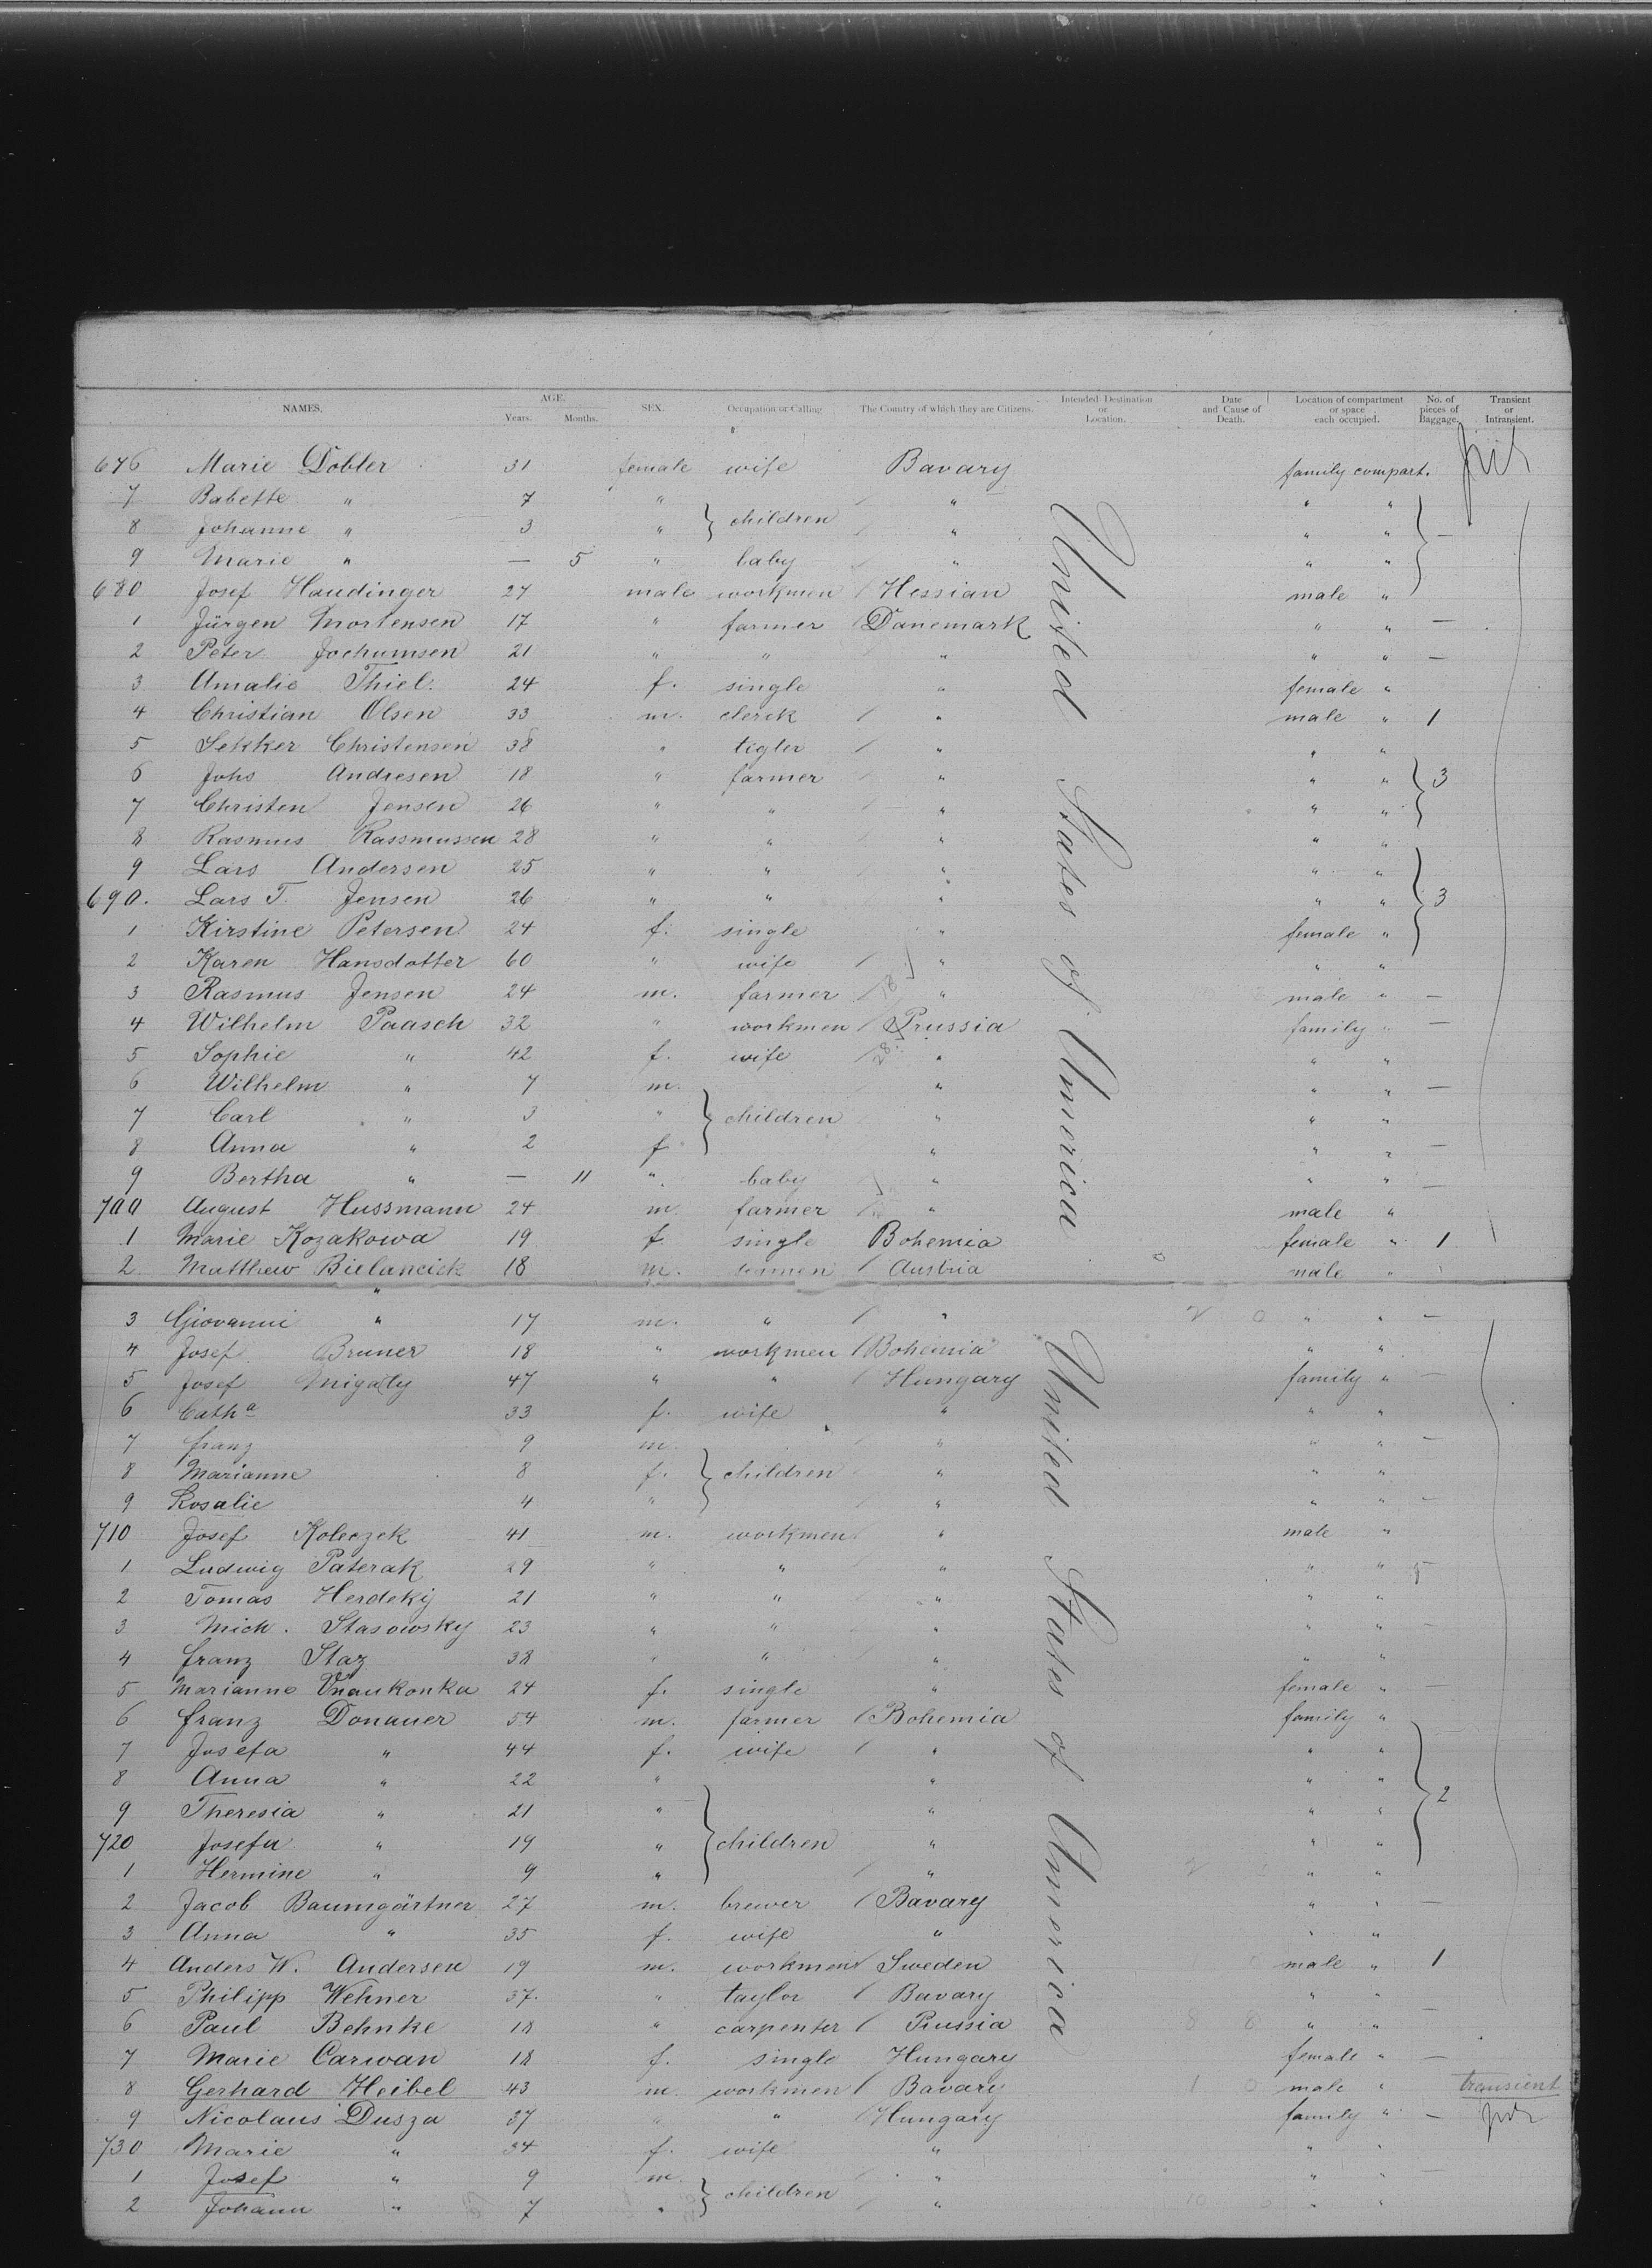 NAMES. AGE. Years. Months. SEX. Occupation or Calling The Country of which they are Citizens. Intended Destination or Location. Date and Cause of Death. Location of compartment or space each occupied. No. of pieces of Baggage. Transient or Intransient.
676 Marie Dobler 31 female wife Bavary family compart.
7 Babette " 7 " " " "
8 Johanne " 3 " children " " " —
9 Marie " — 5 " baby " " "
680 Josef Haudinger 27 male workmen Hessian male "
1 Jürgen Mortensen 17 " farmer Danemark " " —
2 Peter Jochumsen 21 " " " " " —
3 Amalie Thiel. 24 f. single " female "
4 Christian Olsen 33 m. clerck " male " 1
5 Sekker Christensen 38 " tigler " " "
6 Johs Andresen 18 " farmer " " " 3
7 Christen Jensen 26 " " " " "
8 Rasmus Rassmussen 28 " " " " "
9 Lars Andersen 25 " " " " "
690. Lars T. Jensen 26 " " " " " 3
1 Kirstine Petersen 24 f. single " female "
2 Karen Hansdotter 60 " wife " " "
3 Rasmus Jensen 24 m. farmer " male " —
4 Wilhelm Paasch 32 " workmen Prussia family " —
5 Sophie " 42 f. wife " " "
6 Wilhelm " 7 m. " " " —
7 Carl " 3 " children " " "
8 Anna " 2 f " " " —
9 Bertha " — 11 " baby " " " —
700 August Hussmann 24 m. farmer " male "
1 Marie Kozakowa 19 f single Bohemia female " 1
2 Matthew Bielancick 18 m. Austria male "
United States of America
3 Giovanni " 17 m. " " " " —
4 Josef Bruner 18 " workmen Bohemia " "
5 Josef Migaty 47 " " Hungary family " —
6 Catha 33 f. wife " " "
7 franz 9 m. " " " —
8 Marianne 8 f. children " " "
9 Rosalie 4 " " " " —
710 Josef Koleczek 41 m. workmen " male "
1 Ludwig Paterak 29 " " " " "
2 Tomas Herdekij 21 " " " " "
3 Mich. Stasowsky 23 " " " " " —
4 franz Staz 38 " " " " "
5 Marianne 24 f. single " female " —
6 franz Donauer 54 m. farmer Bohemia family "
7 Josefa " 44 f. wife " " "
8 Anna " 22 " " " "
9 Theresia " 21 " " " " 2
720 Josefa " 19 " children " " "
1 Hermine " 9 " " " "
2 Jacob Baumgärtner 27 m. brewer Bavary " " —
3 Anna " 35 f. wife " " "
4 Anders W. Andersen 19 m. workmen Sweden male " 1
5 Philipp Wehner 37. " taylor Bavary " "
6 Paul Behnke 18 " carpenter Prussia " " —
7 Marie Carwan 18 f. single Hungary female " —
8 Gerhard Heibel 43 m. workmen Bavary male " transient
9 Nicolaus Dusza 37 " " Hungary family " —
730 Marie " 34 f. wife " " "
1 Josef " 9 m. " " " —
2 Johann " 7 " children " " "
United States of America